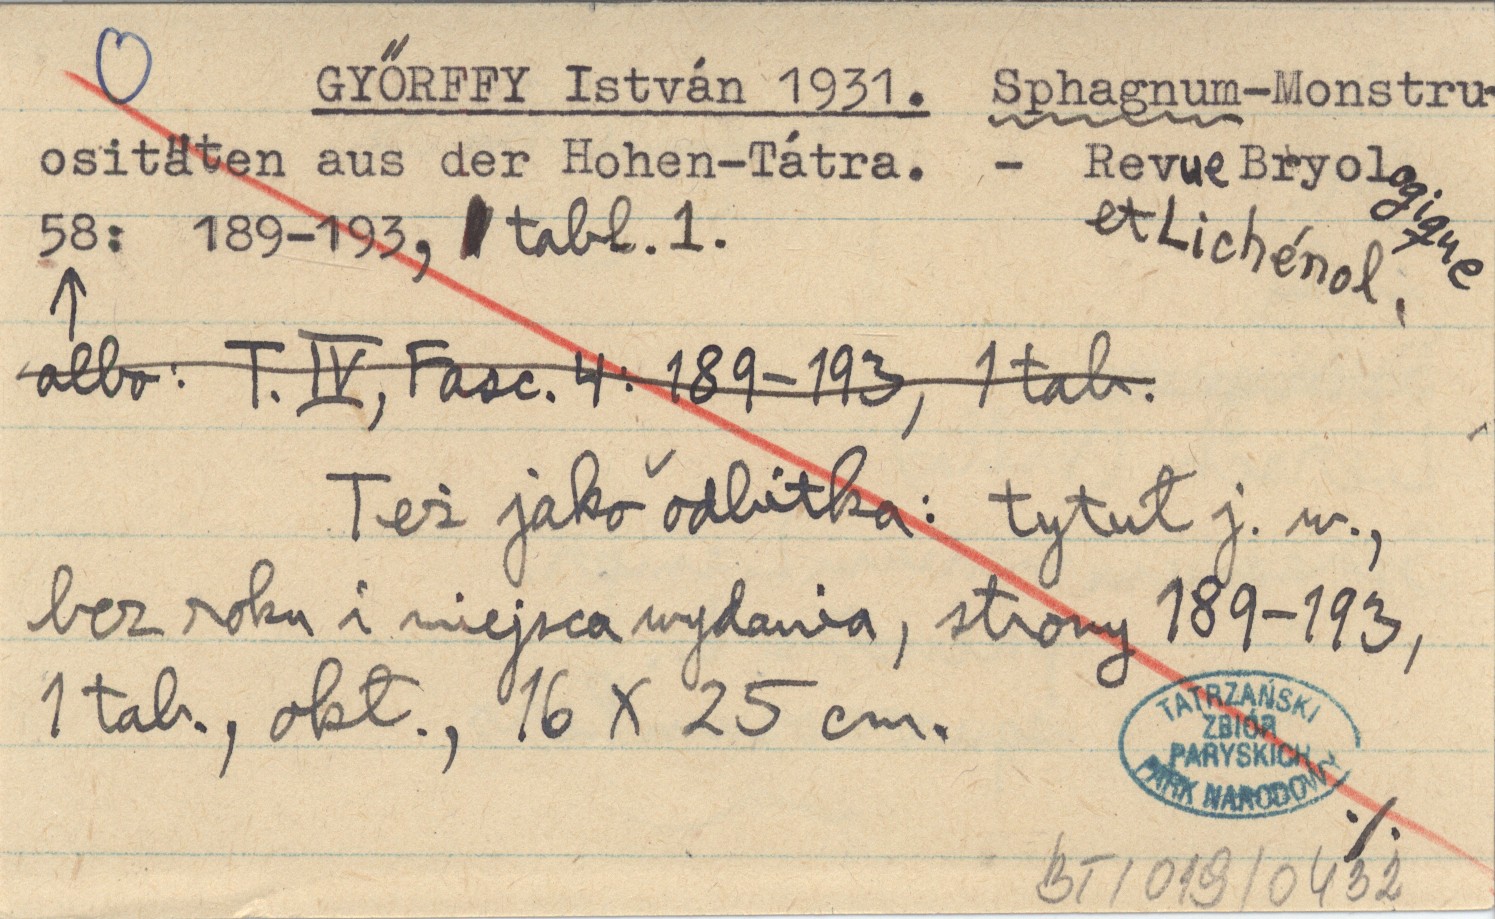 GYŐRFFY István 1931. Sphagnum-Monstru-
ositäten aus der Hohen-Tátra. - Revue Bryologique
et Lichénol.
58: 189-193, tabl. 1.
albo: T. IV, Fasc. 4: 189-193, 1 tab.
Też jako odbitka: tytuł j. w.,
bez roku i miejsca wydania, strony 189-193,
1 tab., okł., 16 X 25 cm.
TATRZAŃSKI
ZBIÓR
PARYSKICH
PARK NARODOWY
./.
BT/019/0432